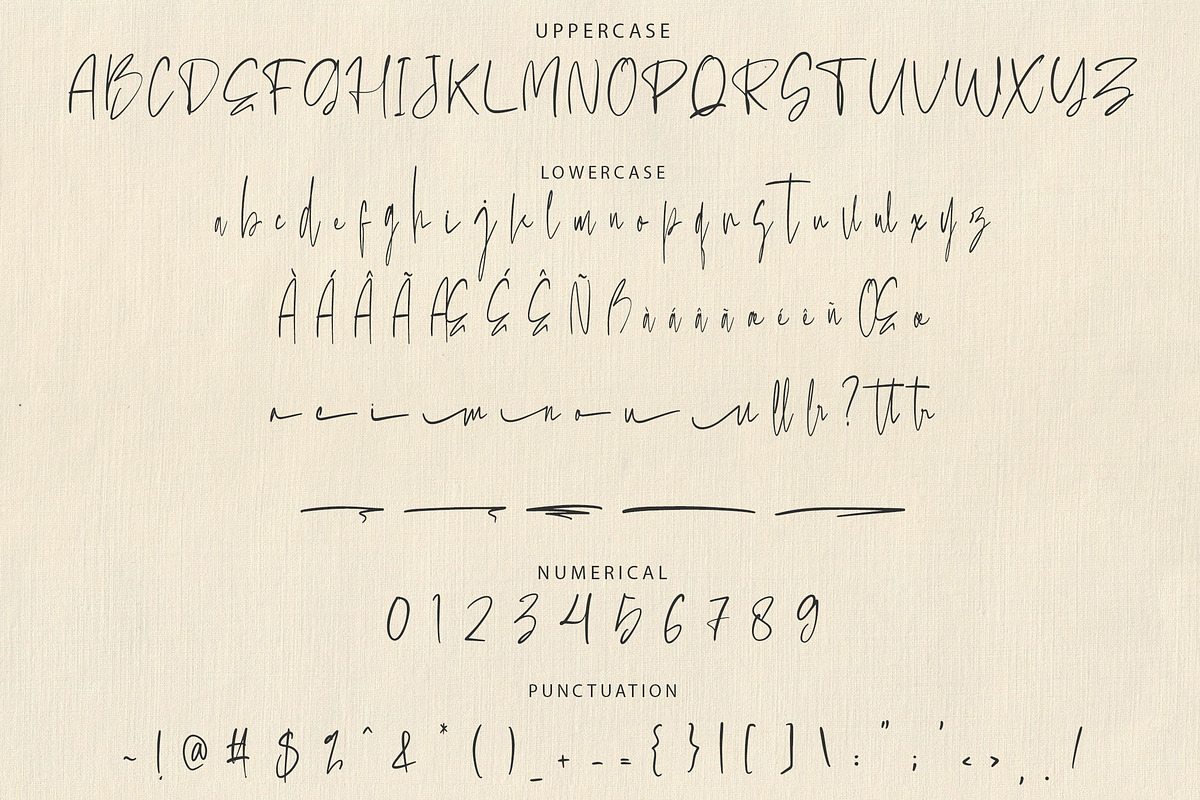 UPPERCASE
ABCDEFGHIJKLMNOPQRSTUVWXYZ
LOWERCASE
a b c d e f g h i j k l m n o p q r s t u v w x y z
À Á Â Ã Æ É Ê Ñ B à á â ã æ é ê ñ Œ œ
a e i m n o u u ll lr ? tt tr
NUMERICAL
0 1 2 3 4 5 6 7 8 9
PUNCTUATION
~ ! @ # $ % ^ & * ( ) _ + - = { } | [ ] \ : " ; ' < > , . /